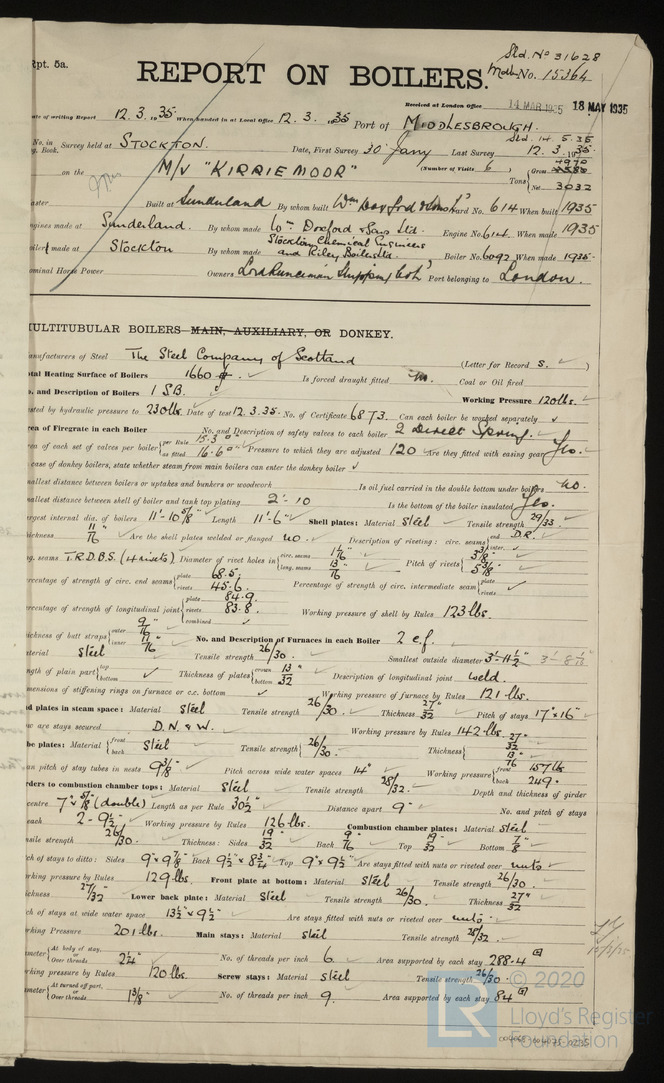 Sld. No 31628
Rpt. 5a.
REPORT ON BOILERS.
Mdb No. 15364
Received at London Office 14 MAR 1935 18 MAY 1935
ate of writing Report 12.3.1935 When handed in at Local Office 12.3.1935 Port of MIDDLESBROUGH.
Sld. 14.5.35
No. in Survey held at STOCKTON. Date, First Survey 30 Jany Last Survey 12.3.1935.
g. Book.
on the M/V "KIRRIEMOOR" (Number of Visits 6) Tons Gross 4970
Net 3032
aster Built at Sunderland By whom built Wm Doxford & Sons Ltd Yard No. 614 When built 1935
ngines made at Sunderland. By whom made Wm Doxford & Sons Ltd. Engine No. 614. When made 1935
oilers made at Stockton By whom made Stockton Chemical Engineers and Riley Boilers Ltd. Boiler No. 6092 When made 1935.
ominal Horse Power Owners Port belonging to London.
ULTITUBULAR BOILERS MAIN, AUXILIARY, OR DONKEY.
anufacturers of Steel The Steel Company of Scotland (Letter for Record S.)
otal Heating Surface of Boilers 1660 Is forced draught fitted no. Coal or Oil fired
s. and Description of Boilers 1 S.B. Working Pressure 120 lbs.
sted by hydraulic pressure to 230 lbs. Date of test 12.3.35. No. of Certificate 6873. Can each boiler be worked separately ✓
rea of Firegrate in each Boiler No. and Description of safety valves to each boiler 2 Direct Spring.
rea of each set of valves per boiler per Rule 15.3 as fitted 16.6 Pressure to which they are adjusted 120 Are they fitted with easing gear Yes.
case of donkey boilers, state whether steam from main boilers can enter the donkey boiler ✓
mallest distance between boilers or uptakes and bunkers or woodwork Is oil fuel carried in the double bottom under boilers no.
mallest distance between shell of boiler and tank top plating 2'-10 Is the bottom of the boiler insulated Yes.
argest internal dia. of boilers 11'-10 5/8" Length 11'-6" Shell plates: Material steel Tensile strength 29/33.
hickness 11/16" Are the shell plates welded or flanged no. Description of riveting: circ. seams end D.R. inter.
g. seams T.R.D.B.S. (4 rivets) Diameter of rivet holes in circ. seams 1 1/16" long. seams 13/16" Pitch of rivets 3 3/8" 5 3/8"
ercentage of strength of circ. end seams plate 68.5. rivets 45.6. Percentage of strength of circ. intermediate seam plate rivets
ercentage of strength of longitudinal joint plate 84.9. rivets 83.8. combined Working pressure of shell by Rules 123 lbs.
hickness of butt straps outer 9/16" inner 9/16" No. and Description of Furnaces in each Boiler 2 c.f.
aterial steel Tensile strength 26/30. Smallest outside diameter 3'-11 1/2"
ngth of plain part top bottom Thickness of plates crown bottom 13/32" Description of longitudinal joint weld.
imensions of stiffening rings on furnace or c.c. bottom Working pressure of furnace by Rules 121 lbs.
d plates in steam space: Material steel Tensile strength 26/30. Thickness 27/32" Pitch of stays 17" x 16"
ow are stays secured D.N. & W. Working pressure by Rules 142 lbs.
be plates: Material front back steel Tensile strength 26/30. Thickness 27/32" 13/16"
an pitch of stay tubes in nests 9 3/8" Pitch across wide water spaces 14" Working pressure front 157 lbs back 249.
rders to combustion chamber tops: Material steel Tensile strength 28/32. Depth and thickness of girder
centre 7" x 5/8" (double) Length as per Rule 30 1/2 Distance apart 9" No. and pitch of stays
each 2-9 1/2 Working pressure by Rules 126 lbs. Combustion chamber plates: Material steel
nsile strength 26/30. Thickness: Sides 19/32" Back 9/16" Top 19/32" Bottom 7/8"
ch of stays to ditto: Sides 9" x 9 7/8" Back 9 1/2" x 8 3/4" Top 9" x 9 1/2" Are stays fitted with nuts or riveted over nuts
rking pressure by Rules 129 lbs. Front plate at bottom: Material steel Tensile strength 26/30.
ickness 27/32" Lower back plate: Material steel Tensile strength 26/30. Thickness 27/32"
ch of stays at wide water space 13 1/2" x 9 1/2" Are stays fitted with nuts or riveted over nuts.
rking Pressure 201 lbs. Main stays: Material steel Tensile strength 28/32.
ameter At body of stay, or Over threads 2 1/4" No. of threads per inch 6. Area supported by each stay 288.4
rking pressure by Rules 120 lbs. Screw stays: Material steel Tensile strength 26/30.
ameter At turned off part, or Over threads 1 3/8" No. of threads per inch 9. Area supported by each stay 84
© 2020
Lloyd's Register
Foundation